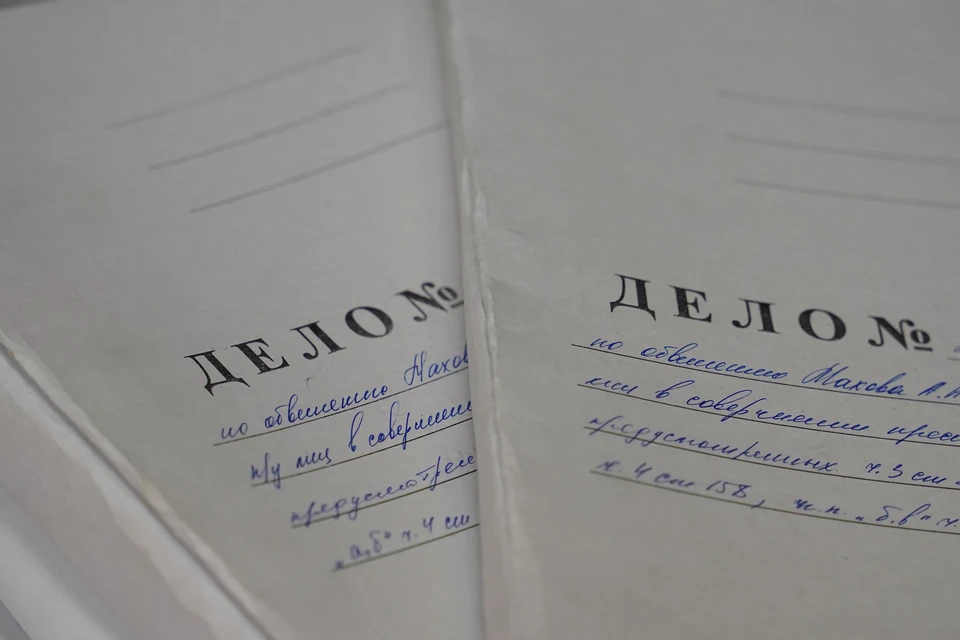 ДЕЛО №
по обвинению Махов
пр и лиц в совершении
предусмотрен
"а,б" ч. 4 ст
ДЕЛО №
по обвинению Махова А.
лиц в совершении прес
предусмотренных ч. 3 ст
ч. 4 ст 158, п.п. "б, в" ч.